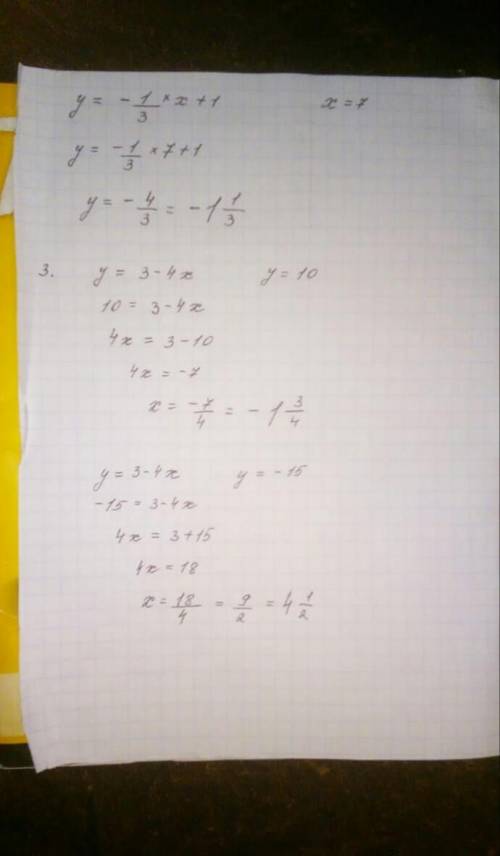 y = -1/3 * x + 1 x = 7
y = -1/3 * 7 + 1
y = -4/3 = -1 1/3
3. y = 3 - 4x y = 10
10 = 3 - 4x
4x = 3 - 10
4x = -7
x = -7/4 = -1 3/4
y = 3 - 4x y = -15
-15 = 3 - 4x
4x = 3 + 15
4x = 18
x = 18/4 = 9/2 = 4 1/2